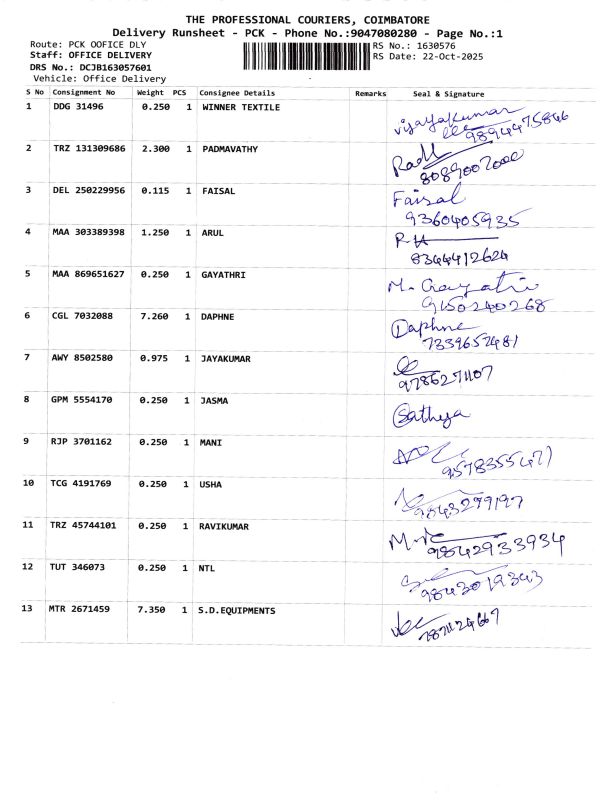 THE PROFESSIONAL COURIERS, COIMBATORE
Delivery Runsheet - PCK - Phone No.:9047080280 - Page No.:1
Route: PCK OOFICE DLY RS No.: 1630576
Staff: OFFICE DELIVERY RS Date: 22-Oct-2025
DRS No.: DCJB163057601
Vehicle: Office Delivery
S No Consignment No Weight PCS Consignee Details Remarks Seal & Signature
1 DDG 31496 0.250 1 WINNER TEXTILE Vijayakumar
9894475846
2 TRZ 131309686 2.300 1 PADMAVATHY
8089007000
3 DEL 250229956 0.115 1 FAISAL Faisal
9360405935
4 MAA 303389398 1.250 1 ARUL
8344412624
5 MAA 869651627 0.250 1 GAYATHRI M. Gayatri
9150240268
6 CGL 7032088 7.260 1 DAPHNE Daphne
7339657481
7 AWY 8502580 0.975 1 JAYAKUMAR
9786271107
8 GPM 5554170 0.250 1 JASMA Sathya
9 RJP 3701162 0.250 1 MANI
9578355471
10 TCG 4191769 0.250 1 USHA
9843299197
11 TRZ 45744101 0.250 1 RAVIKUMAR
9842933934
12 TUT 346073 0.250 1 NTL
9843019343
13 MTR 2671459 7.350 1 S.D.EQUIPMENTS
7871124667